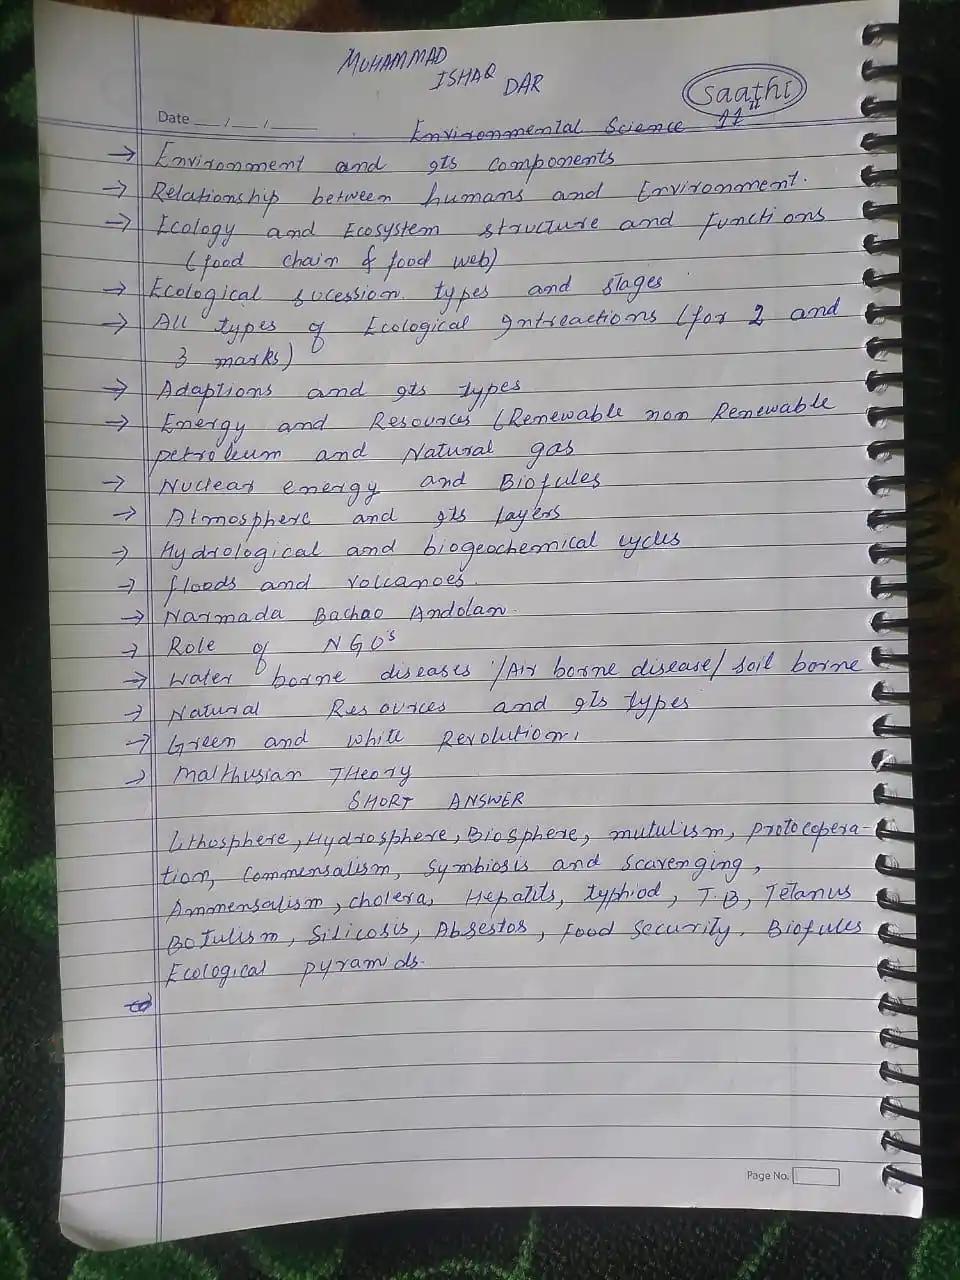 MUHAMMAD
ISHAQ
DAR
Saathi
Date __/__/____
Environmental Science 11th
→ Environment and gts components
→ Relationship between humans and Environment.
→ Ecology and Ecosystem structure and functions
(food chain & food web)
→ Ecological sucession types and stages
→ All types of Ecological gntreactions (for 2 and
3 marks)
→ Adaptions and gts types
→ Energy and Resources (Renewable non Renewable
petroleum and Natural gas
→ Nuclear energy and Biofules
→ Atmosphere and gts layers
→ Hydrological and biogeochemical cycles
→ floods and volcanoes.
→ Narmada Bachao Andolan.
→ Role of NGO's
→ Water borne diseases /Air borne disease/ soil borne
→ Natural Resources and gts types
→ Green and white Revolution,
→ Malthusian THeory
SHORT ANSWER
Lithosphere, Hydrosphere, Biosphere, mutulism, protocopera-
tion, Commensalism, Symbiosis and Scavenging,
Ammensalism, cholera, Hepatits, typhiod, T.B, Tetanus
Botulism, Silicosis, Absestos, Food Security. Biofules
Ecological pyramids.
Page No.